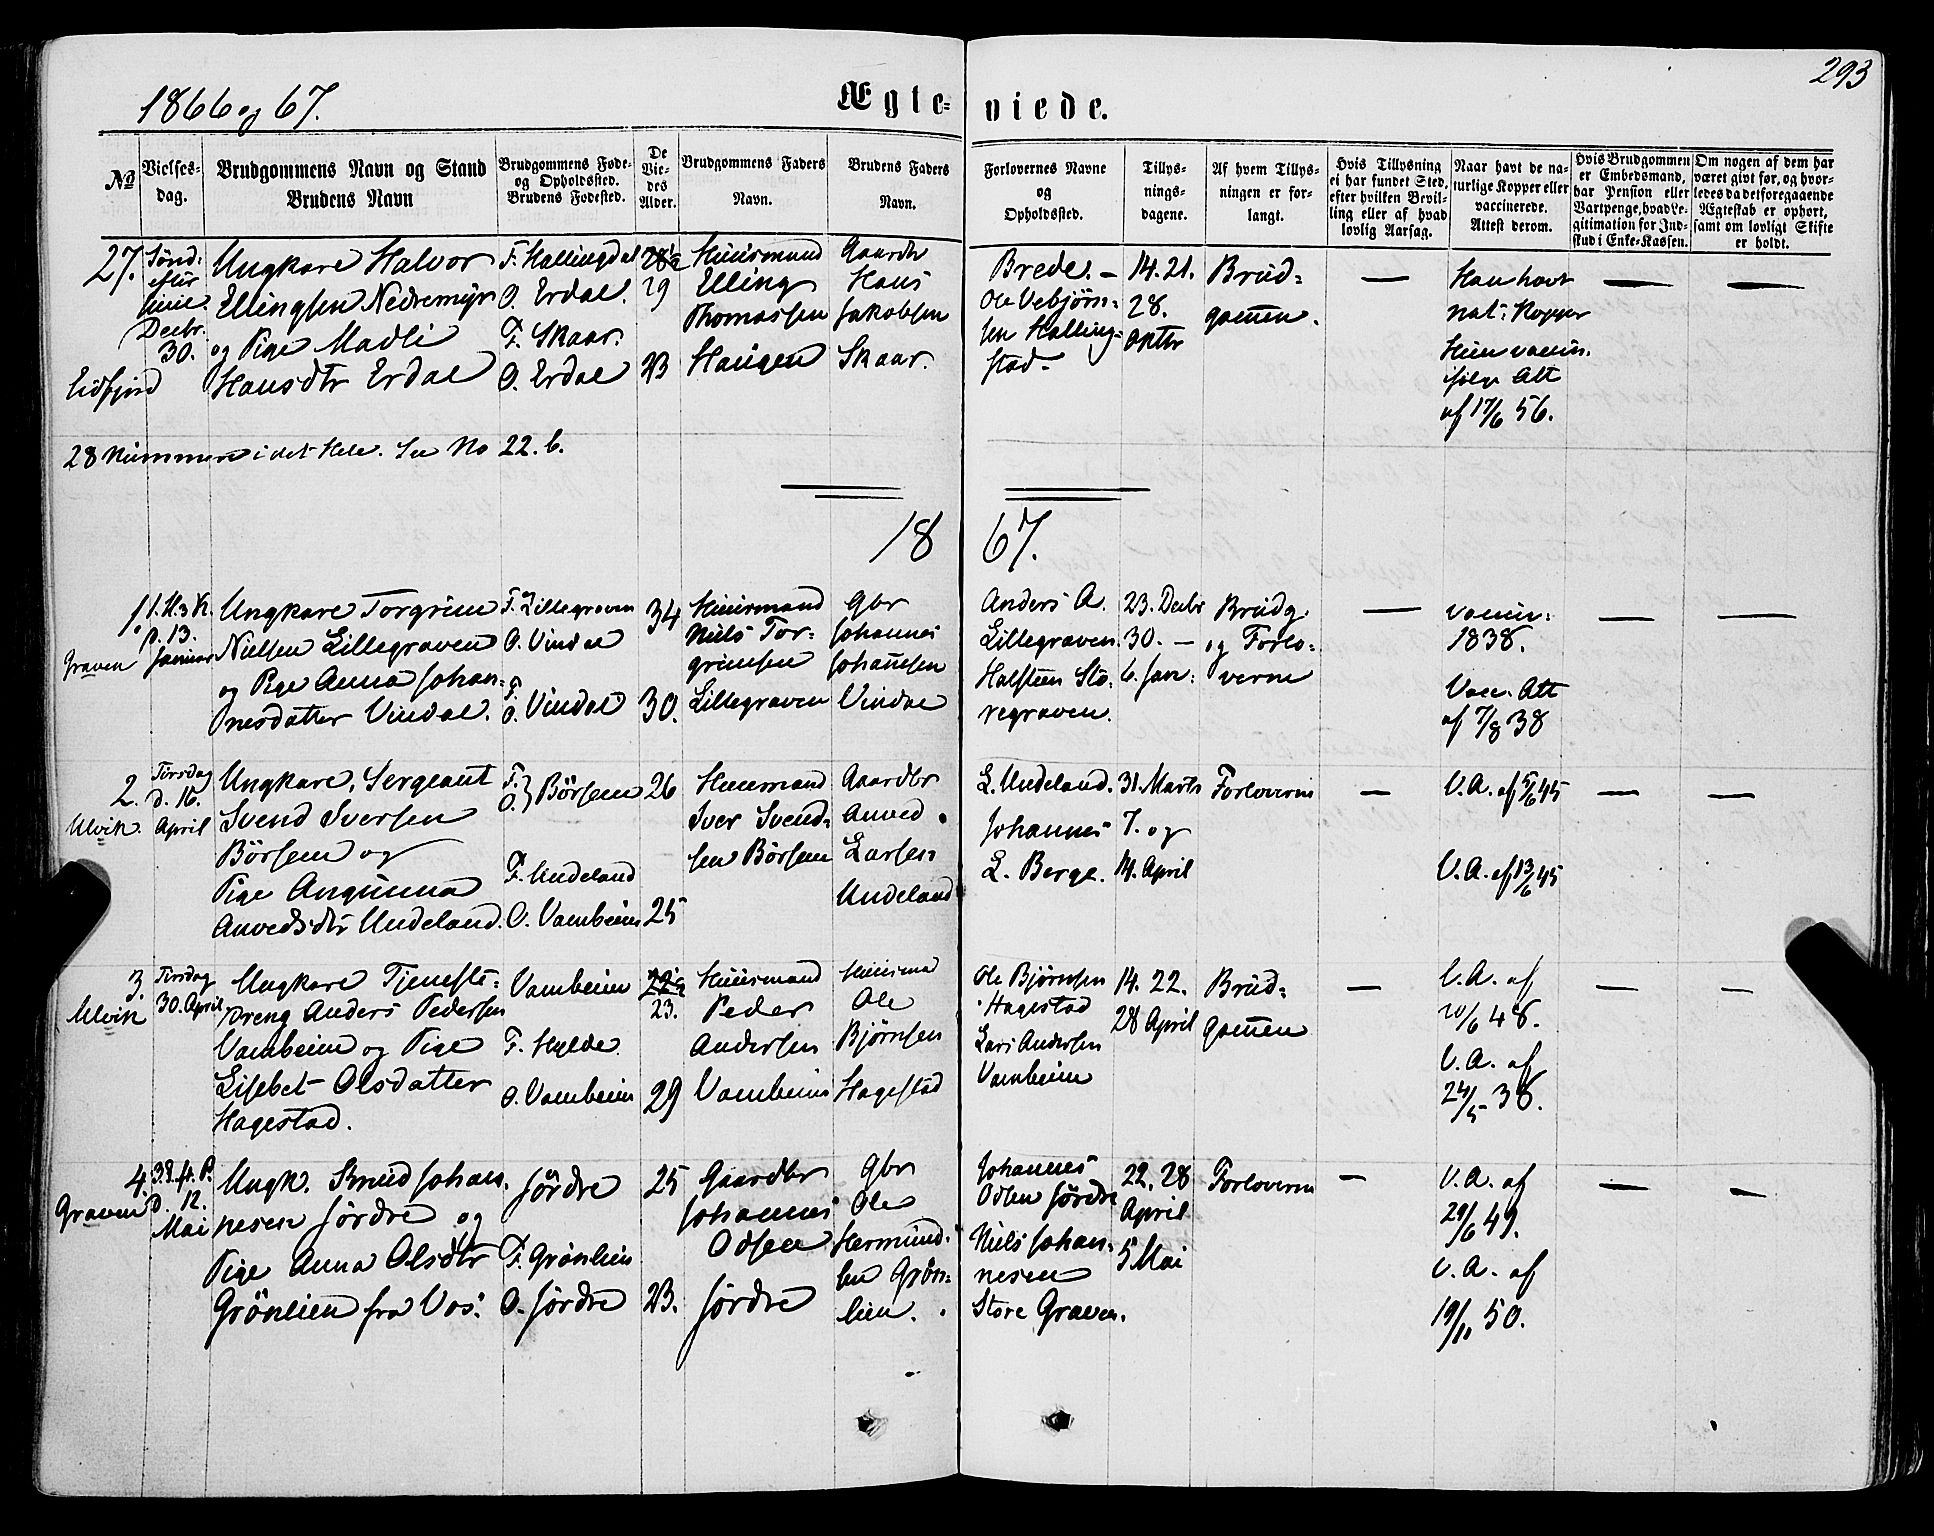 293
1866 og 67.
Ægte- viede.
No
Vielses-
dag.
Brudgommens Navn og Stand
Brudens Navn
Brudgommens Føde-
og Opholdssted.
Brudens Fødested.
De
Vie-
des
Alder.
Brudgommens Faders
Navn.
Brudens Faders
Navn.
Forlovernes Navne
og
Opholdssted.
Tillys-
nings-
dagene.
Af hvem Tillys-
ningen er for-
langt.
Hvis Tillysning
ei har fundet Sted,
efter hvilken Bevil-
ling eller af hvad
lovlig Aarsag.
Naar havt de na-
turlige Kopper eller
vaccinerede.
Attest derom.
Hvis Brudgommen
er Embedsmand,
har Pension eller
Vartpenge, hvad Le-
gitimation for Ind-
skud i Enke-Kassen.
Om nogen af dem har
været givt før, og hvor-
ledes da det foregaaende
Ægteskab er ophørt,
samt om lovligt Skifte
er holdt.
27.
Sønd.
efter
Juul
Decbr.
30.
Eidfjord
Ungkarl Halvor
Ellingsen Nedremyr
og Pige Madli
Hansdtr Erdal
F. Hallingdal
O. Erdal.
F. Skaar.
O. Erdal
29
23
Huusmand
Elling
Thomassen
Haugen
Gaardbr
Hans
Jakobsen
Skaar.
Brede. –
Ole Vebjørn-
sen Halling-
stad.
14. 21.
28.
Octbr
Brud-
gommen.
—
Han havt
nat: Kopper
Hun vaccin.
ifølge Att
af 17/6 56.
—
—
28 Nummere i det Hele. See No 22.b.
18 67.
1.
1. S. e H. 3 K.
d. 13.
Januar
Graven
Ungkarl Torgrim
Nielsen Lillegraven
og Pige Anna Johan-
nesdatter Vindal.
F. Lillegraven
O. Vindal
F.
O. Vindal
34
30.
Huusmand
Niels Tor-
grimsen
Lillegraven
Gbr
Johannes
Johannesen
Vindal
Anders A.
Lillegraven.
Halsteen Sto-
regraven.
23. Decbr
30. —
6. Jan:
Brudg.
og Forlo-
verne
—
vaccin:
1838.
Vacc. Att
af 7/8 38
—
—
2.
Tirsdag
d. 16.
April
Ulvik.
Ungkarl, Sergeant
Svend Iversen
Børsem og
Pige Angunna
Anvedsdtr Undeland.
F.
O. } Børsem
F. Undeland
O. Vambeim
26
25
Huusmand
Iver Svend-
sen Børsem
Gaardbr
Anved
Larsen
Undeland
L. Undeland.
Johannes
L. Berge.
31. Marts
7. og
14. April
Forloverne
—
V.A. af 5/6 45
V.A. af 13/6 45
—
—
3.
Tirsdag
30. April
Ulvik
Ungkarl Tjeneste-
dreng Anders Pedersen
Vambeim og Pige
Lisebet Olsdatter
Hagestad.
Vambeim
F. Hylde.
O. Vambeim
23.
29
Huusmand
Peder
Andersen
Vambeim
Huusmd
Ole
Bjørnsen
Hagestad
Ole Bjørnsen
Hagestad
Lars Andersen
Vambeim
14. 22.
28 April
Brud-
gommen
—
V.A. af
20/6 48.
V.A. af
24/5 38.
—
—
4.
3. S. f. P.
D. 12.
Mai
Graven
Ungk. Knud Johan-
nesen Jørdre og
Pige Anna Olsdtr
Grønlien fra Vos.
Jørdre
F. Grønlien
O. Jørdre
25
23.
Gaardbr
Johannes
Odsen
Jørdre
Gbr
Ole
Hermund-
sen Grøn-
lien.
Johannes
Odsen Jørdre
Niels Johan-
nesen
Store Graven.
22. 28
April
5 Mai
Forloverne
—
V.A. af
29/6 49.
V.A. af
19/10 50.
—
—